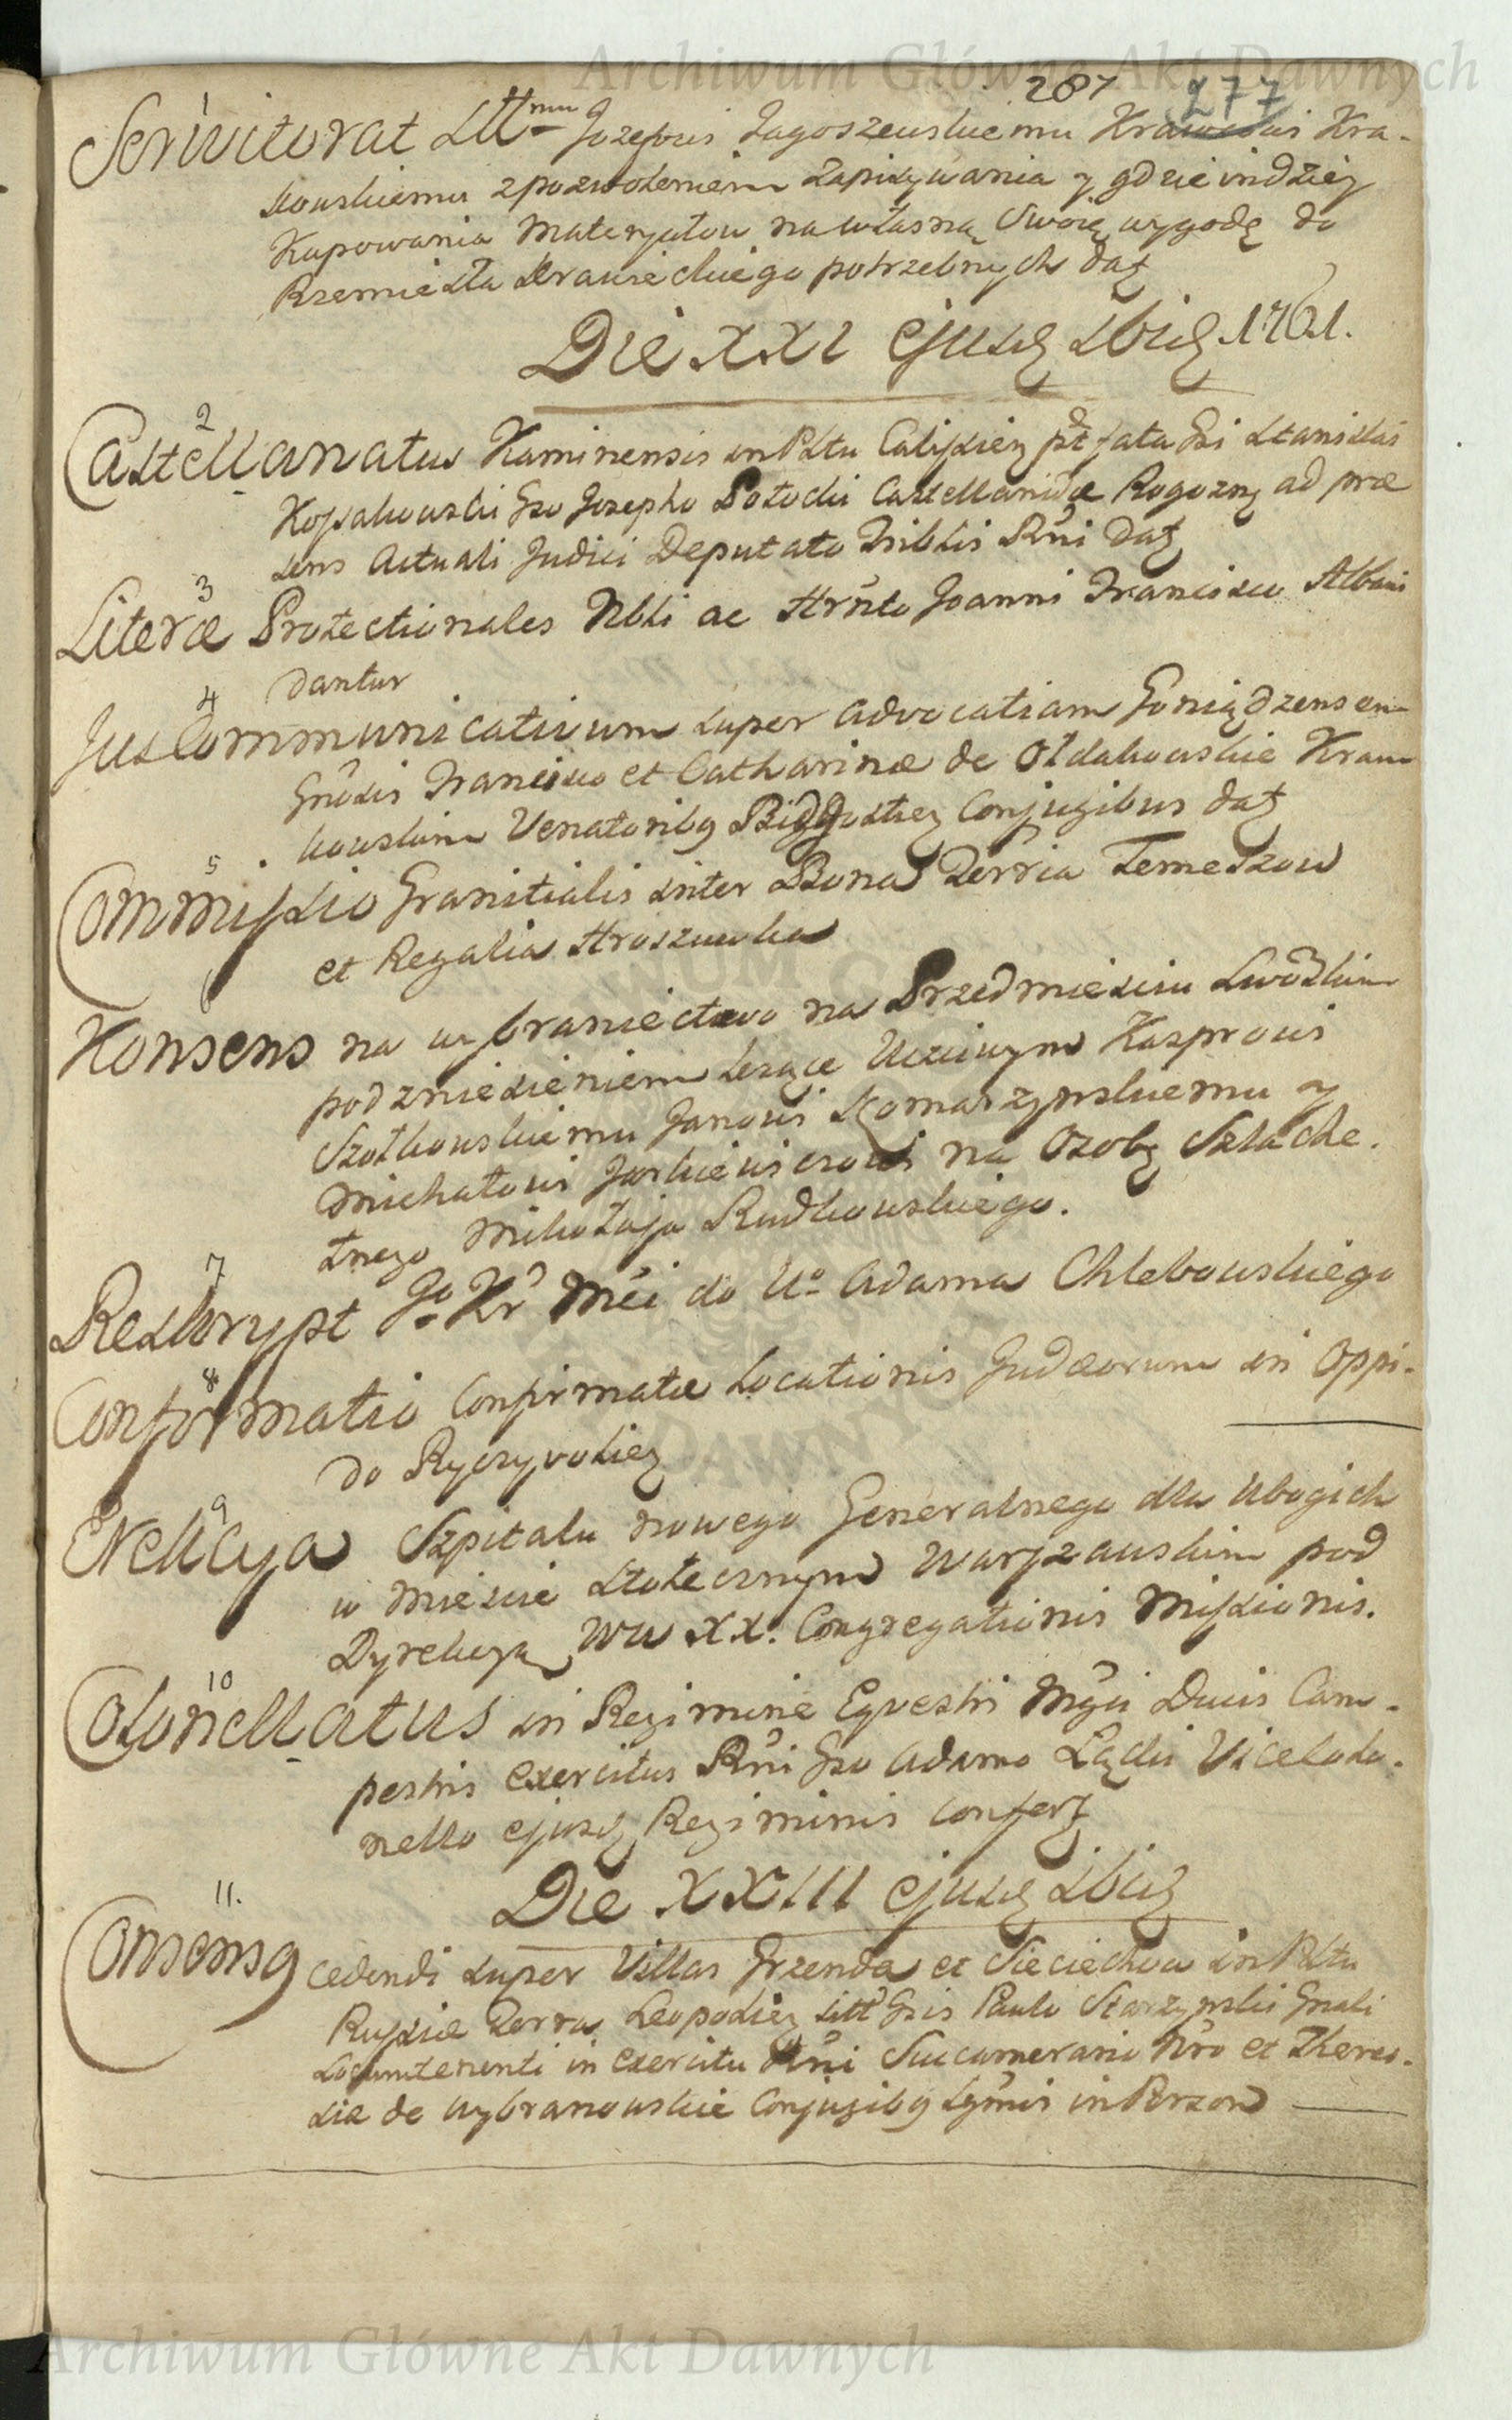 Archiwum Główne Akt Dawnych
207 277
1
Serwitorat Sltt<sup>mu</sup> Jozefowi Jagoszewskiemu Krawcowi Kra-
kowskiemu z pozwoleniem Zapisywania y gdzie indziey
Kupowania Materyałow na własną Swoię wygodę do
Rzemiesła Krawieckiego potrzebnych datę
Die XXI ejusdę Xbrię 1761.
2
Castellanatus Kaminensis in Pltu Calissieñ pt fata Gsi Stanislai
Kossakowski Gso Josepho Potocki Castellanidæ Rogozñ ad præ
sens Actuali Judici Deputato Triblis Rñi Datę
3
Literæ Protectionales Nbli ac Strñto Joanni Francisco Albani
dantur
4
Jus Communicativum super Advocatiam Goniądzensem
Gñosis Francisco et Catharinæ de Ołdakowskie Kram
kowskim Venatoribq Bidgostieñ Conjugibus datę
5
Commissio Granitialis inter Bona Terria Temeszow
et Regalia Hroszowka
6
Konsens na wybraniectwo na Przedmiesciu Lwowskim
pod zniesieniem leżące Uczciwym Kasprowi
Szołkowskiemu Janowi Komarzynskiemu y
Michałowi Jaskiewiczowi na Osobę Szlache.
tnego Mikołaja Rudkowskiego.
7
Reskrypt Jo Kr Mći do Uo Adama Chlebowskiego
8
Confirmatio Confirmatæ Locationis Judæorum in Oppi-
do Ryczyvolieñ
9
Erekcya Szpitalu nowego Generalnego dla Ubogich
w Miescie Stołecznym Warszawskim pod
Dyrekcyą WW XX. Congregationis Missionis.
10
Colonellatus in Regimine Eqvestri Mgci Ducis Cam-
pestris Exercitus Rñi Gso Adamo Łącki Vicecolo-
nello ejusdę Regiminis Confertę
Die XXIII ejusdę Xbrię
11.
Consensq cedendi super Villas Grzenda et Sieciechow in Pltu
Russiæ Terra Leopolieñ sitt Gsis Paulo Starzynski Gnali
Locumtenenti in Exercitu Rñi Succamerario Nro et There-
siæ de Wybranowskie Conjugibq Lgmis in Person
Archiwum Główne Akt Dawnych